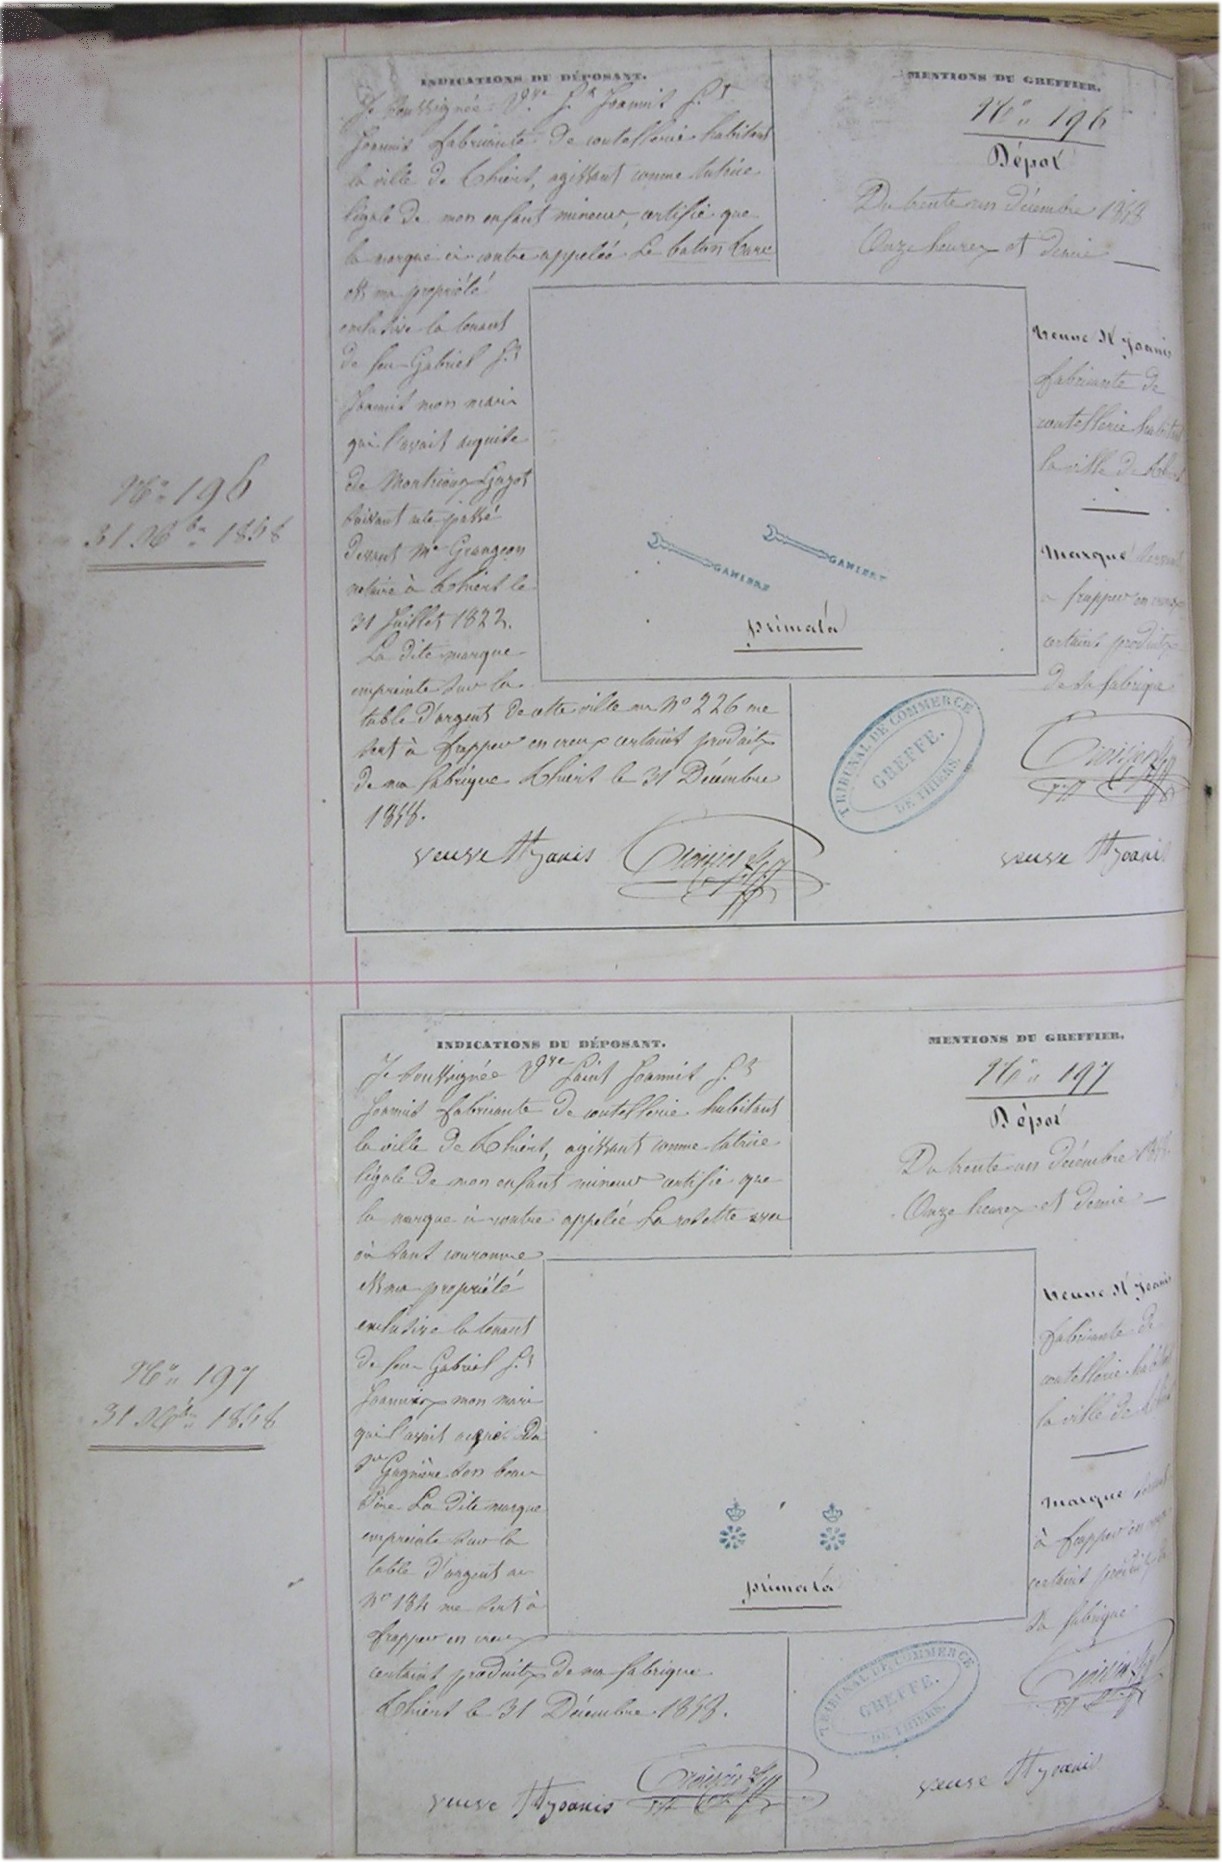 INDICATIONS DU DÉPOSANT.
Je soussignée Vve St Joannis St
Joannis fabricante de coutellerie habitant
la ville de Thiers, agissant comme tutrice
légale de mon enfant mineur, certifie que
la marque ci-contre appelée Le baton
est ma propriété
exclusive la tenant
de feu Gabriel St
Joannis mon mari
qui l'avait acquise
de
suivant acte passé
devant Me Grangeon
notaire à Thiers le
31 Juillet 1822.
La dite marque
empreinte sur la
table d'argent de cette ville au No 226 me
sert à frapper en creux certains produits
de ma fabrique Thiers le 31 Décembre
1858.
veuve St joanis
MENTIONS DU GREFFIER.
No 196
Dépot
Du trente un décembre 1858
Onze heures et demie
veuve St Joanis
fabricante de
coutellerie habitant
la ville de Thiers
marque servant
à frapper en creux
certains produits
de sa fabrique
veuve St joanis
No 196
31 Xbre 1858
GAMIERE
GAMIERE
primata
TRIBUNAL DE COMMERCE
GREFFE.
DE THIERS.
INDICATIONS DU DÉPOSANT.
Je soussignée Vve Saint Joannis St
Joannis fabricante de coutellerie habitant
la ville de Thiers, agissant comme tutrice
légale de mon enfant mineur certifie que
la marque ci contre appelée La rosette avec
couronne
est ma propriété
exclusive la tenant
de feu Gabriel St
Joannis mon mari
qui l'avait acquis du
sr Gagnière son beau
père La dite marque
empreinte sur la
table d'argent au
No 184 me sert à
frapper en creux
certains produits de ma fabrique
Thiers le 31 Décembre 1858.
veuve St joanis
MENTIONS DU GREFFIER.
No 197
Dépot
Du trente un décembre 1858
Onze heures et demie
veuve St Joanis
fabricante de
coutellerie habitant
la ville de Thiers
marque servant
à frapper en creux
certains produits de
sa fabrique
veuve St joanis
No 197
31 Xbre 1858
primata
TRIBUNAL DE COMMERCE
GREFFE.
DE THIERS.